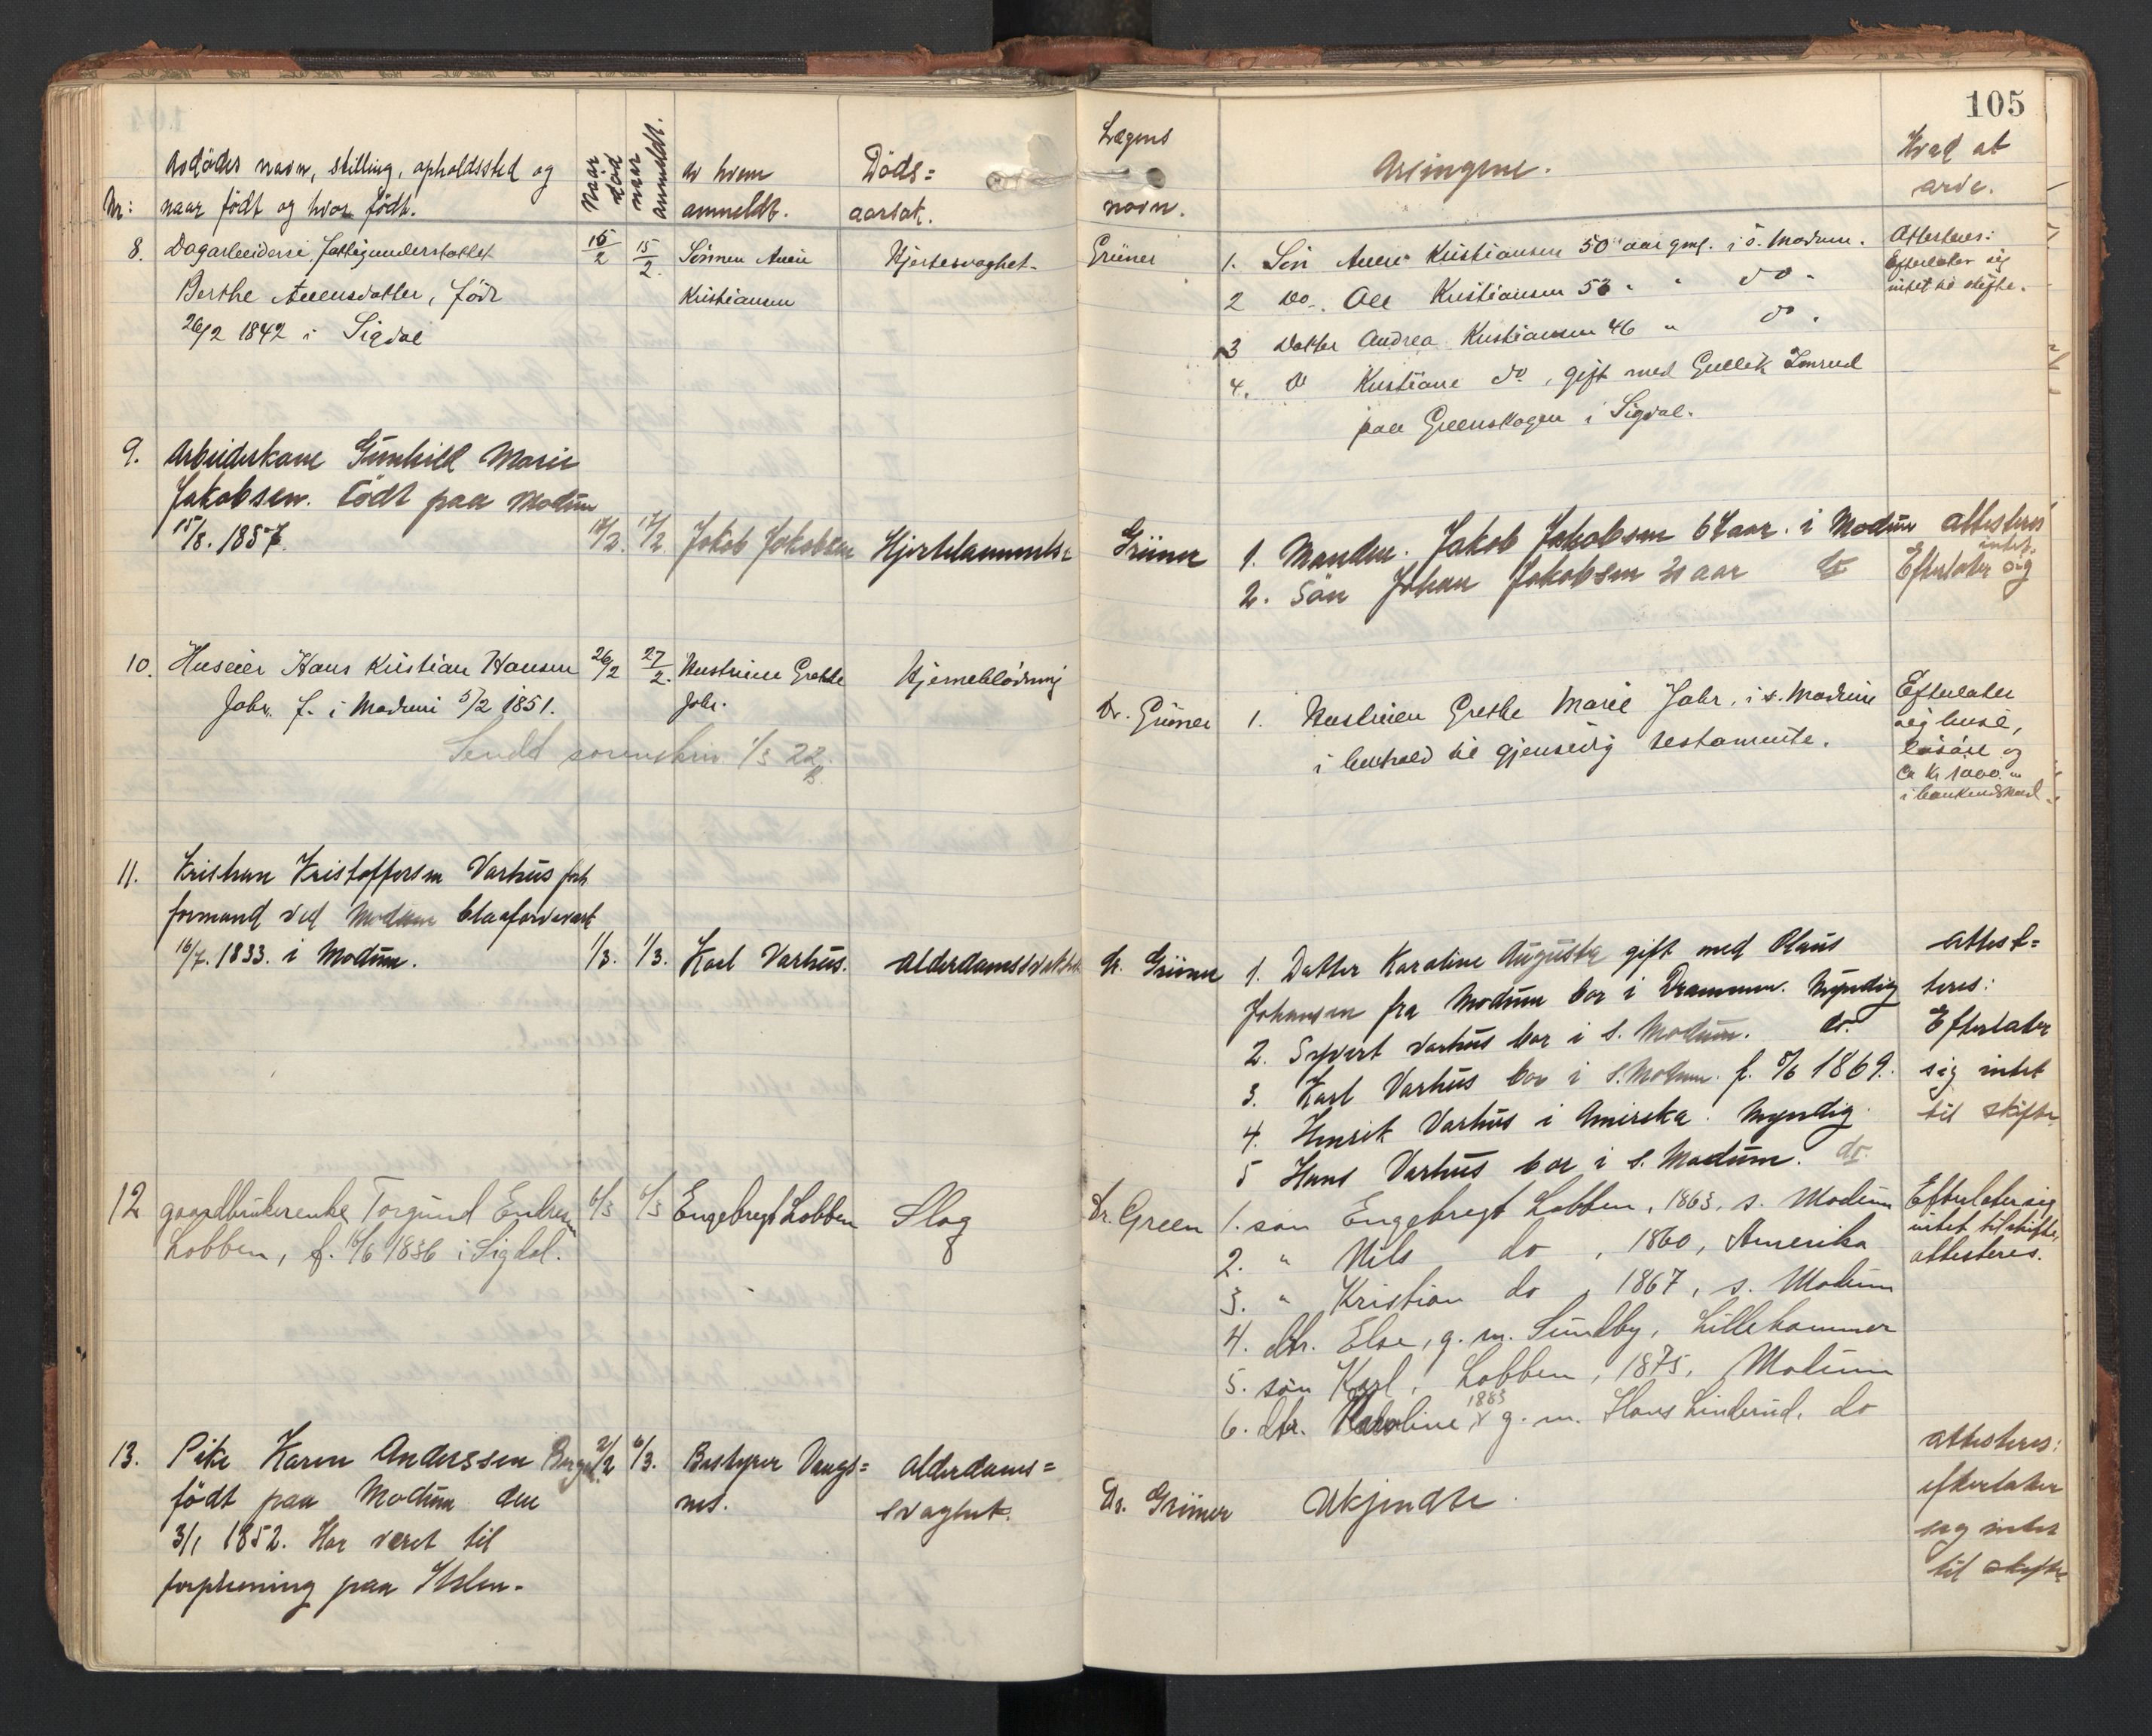 105
Avdødes navn, stilling, opholdssted og
Nr: naar født og hvor født.
Naar død
naar anmeldt.
Av hvem anmeldt.
Døds=
aarsak.
Lægens
navn.
Arvingene.
Hvad at
arve.
8. Dagarbeiderske, fattigunderstøttet 15/2 15/2 Sønnen Kjertesvaghet. Grüner
Berthe født Kristiansen
26/2 1842 i Sigdal
1. Søn Kristiansen 50 aar gml. i s. Modum.
2 do. Kristiansen 53 " " do.
3 Datter Andrea Kristiansen 46 " do.
4. do Kristiane do, gift med Gullik
paa i Sigdal.
Attesteres:
Efterlater sig
intet til skifte.
9. Arbeiderkone Gunhild Marie
Jakobsen. Født paa Modum
15/8. 1857. 17/2 Jakob Jakobsen Hjertelammelse Grüner
1. Manden. Jakob Jakobsen 64 aar. i Modum
2. Søn Johan Jakobsen 30 aar do
attesteres
intet.
Efterlater sig
10. Huseier Hans Kristian Hansen 26/2 27/2. Hustruen Grethe Hjerneblødning Dr. Grüner
Jahr. f. i Modum 5/2 1851. Jahr.
Sendt sorenskriv 1/3 22.
1. Hustruen Grethe Marie Jahr, i s. Modum
i henhold til gjensidig testamente.
Efterlater
sig huse,
løsøre og
ca kr 1000.
i bankindskud.
11. Kristian Kristoffersen Varhus
formand ved Modum blaafarveværk
16/7. 1833. i Modum. 1/3. 1/3. Karl Varhus. Alderdomssvakhet Dr. Grüner
1. Datter Karoline Augusta gift med Olaus
Johansen fra Modum bor i Drammen. Myndig
2. Syvert Varhus bor i s. Modum. do.
3. Karl Varhus bor i s. Modum. f. 1869.
4. Henrik Varhus i Amerika. Myndig.
5 Hans Varhus bor i s. Modum. do.
attest=
teres:
Efterlater
sig intet
til skifte.
12 gaardbrukerenke Torgund Endresen 6/3 6/3 Engebregt Lobben Slag Dr. Green
Lobben, f. 16/6 1836 i Sigdal.
1. søn Engebregt Lobben, 1863, s. Modum
2. " Nils do, 1860, Amerika
3. " Kristian do, 1867, s. Modum
4. dtr. Else, g. m. Sundby, Lillehammer
5. søn Karl, Lobben, 1875, Modum
1883
6. dtr. Karoline, g. m. Hans Linderud, do
Efterlater sig
intet til skifte,
attesteres.
13. Pike Karen Anderssen 2/2 6/3. Bestyrer Vangs= Alderdoms= Dr. Grüner Ukjendte.
født paa Modum den nes. svaghet.
3/1 1852. Har været til
forpleining paa
attesteres:
efterlater
sig intet
til skifte.